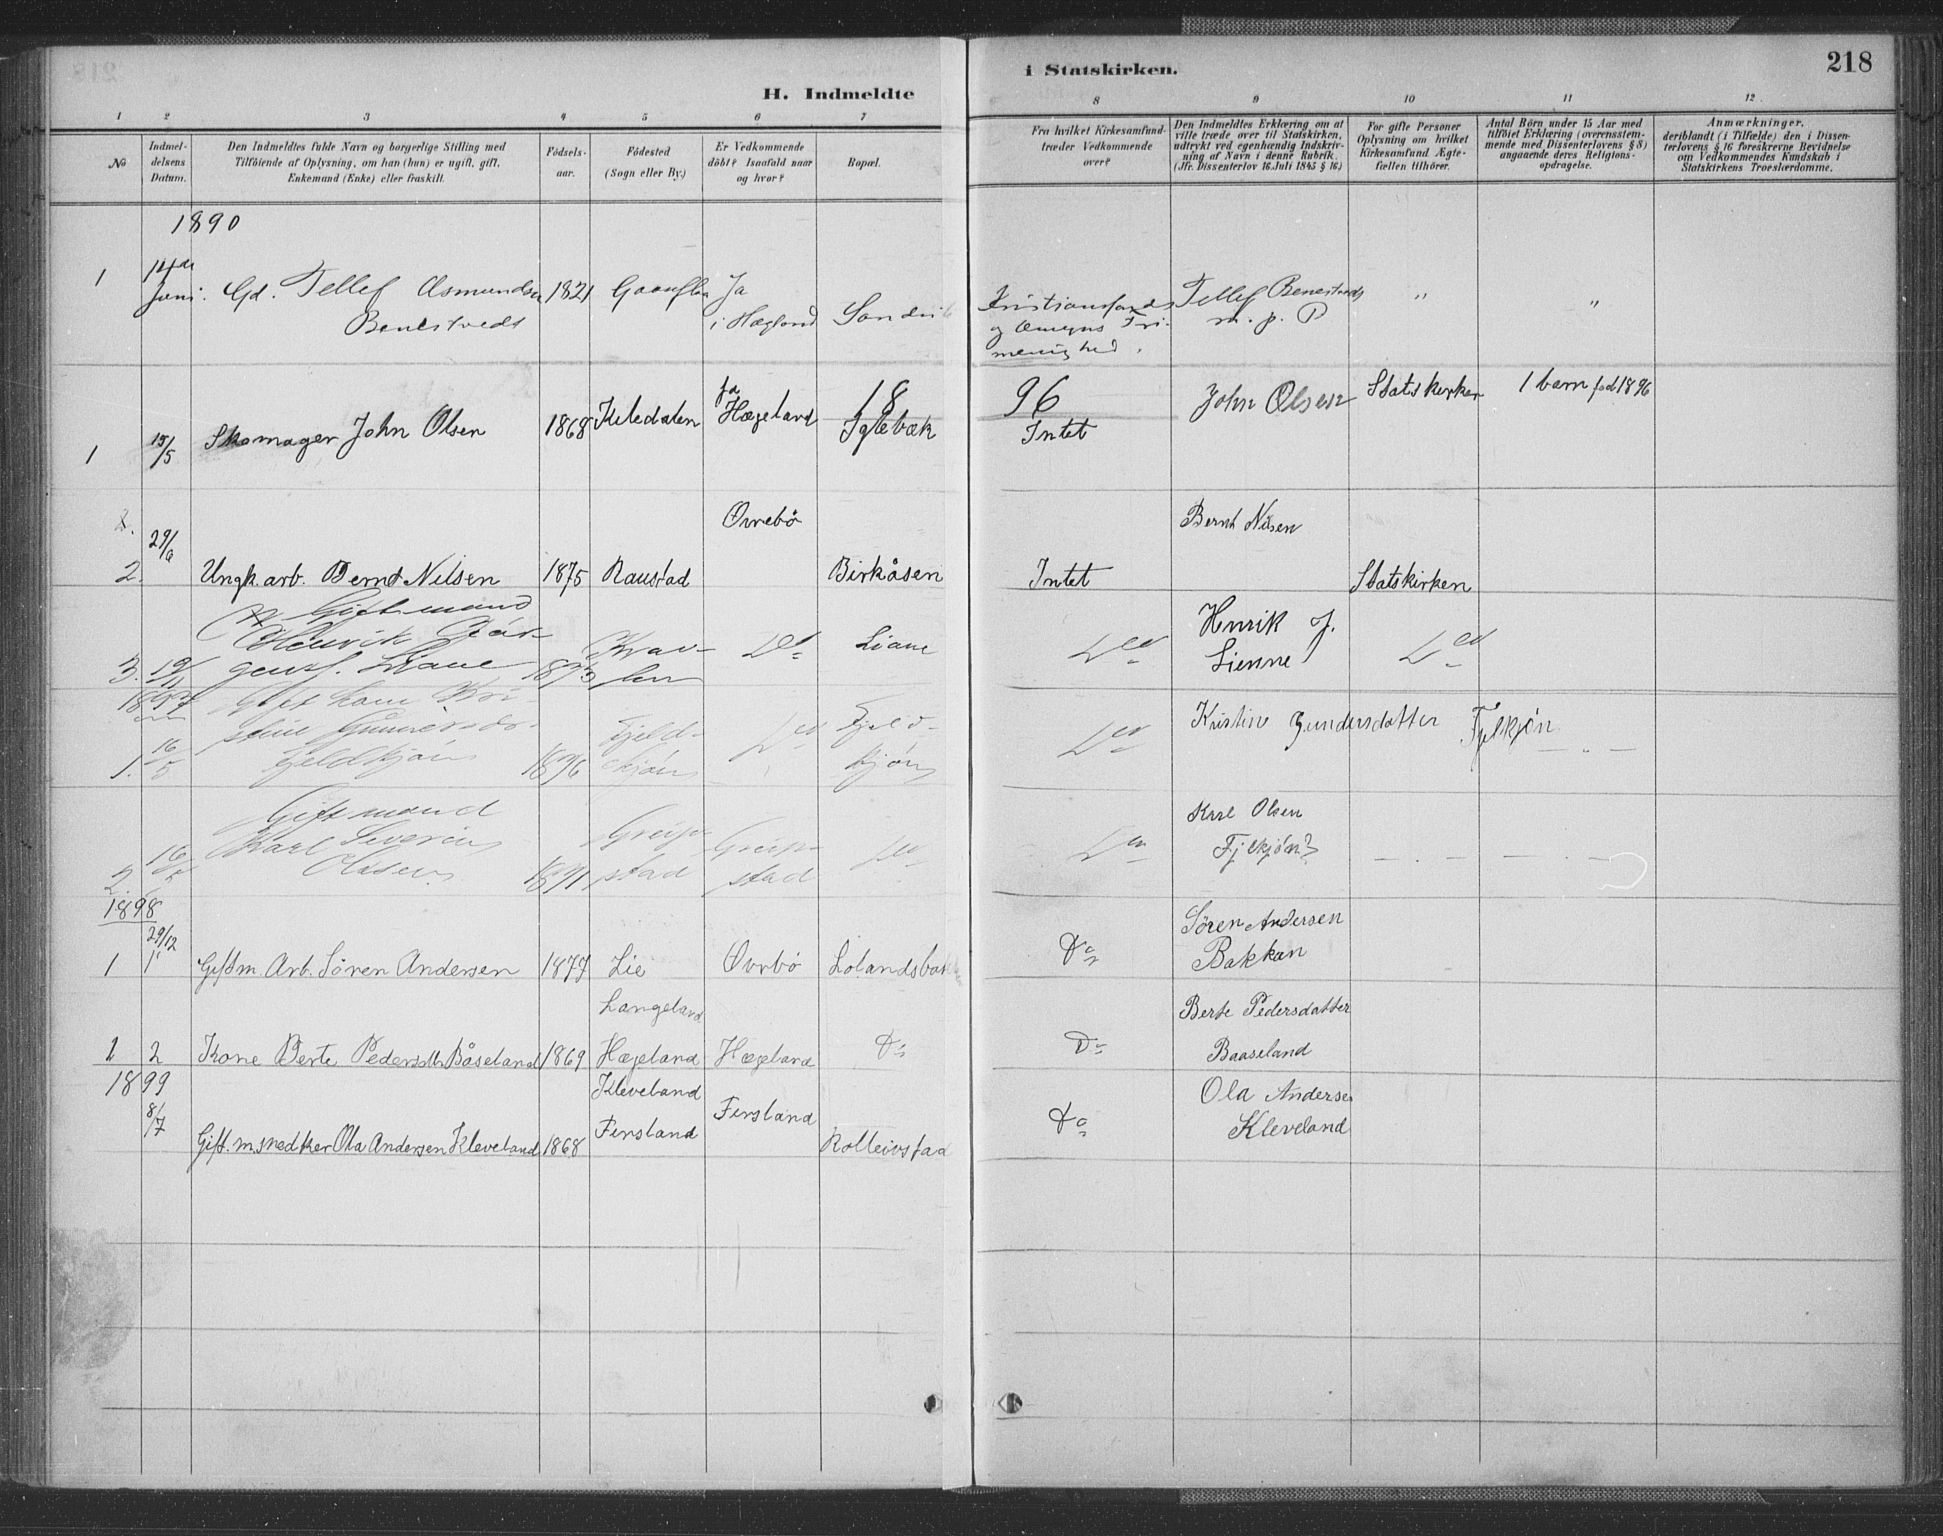 i Statskirken. 218
H. Indmeldte
1 2 3 4 5 6 7 8 9 10 11 12
No
Indmel-
delsens
Datum.
Den Indmeldtes fulde Navn og borgerlige Stilling med
Tilföiende af Oplysning, om han (hun) er ugift, gift,
Enkemand (Enke) eller fraskilt.
Födsels-
aar.
Födested
(Sogn eller By.)
Er Vedkommende
döbt? Isaafald naar
og hvor?
Bopæl.
Fra hvilket Kirkesamfund
træder Vedkommende
over?
Den Indmeldtes Erklæring om at
ville træde over til Statskirken,
udtrykt ved egenhændig Indskriv-
ning af Navn i denne Rubrik.
(Jfr. Dissenterlov 16. Juli 1845 § 16.)
For gifte Personer
Oplysning om hvilket
Kirkesamfund Ægte-
fællen tilhörer.
Antal Börn under 15 Aar med
tilföiet Erklæring (overensstem-
mende med Dissenterlovens § 8)
angaaende deres Religions-
opdragelse.
Anmærkninger,
deriblandt (i Tilfælde) den i Dissen-
terlovens § 16 foreskrevne Bevidnelse
om Vedkommendes Kundskab i
Statskirkens Troeslærdomme.
1890
1 14de Juni. Gd. Tellef Asmundsen 1821 Ja
Benestvedt i Hægland
Kristiansands
og Omegns Fri-
menighed.
Tellef Benestvedt
m. p. P
" "
18 96
1 15/5 Skomager John Olsen 1868 Kiledalen ja Hægeland Iglebæk Intet John Olsen Statskirken 1 barn fød 1896
2. 29/6 Ungk. arb. Bernt Nilsen 1875 Raustad Øvrebö Birkåsen Intet Bernt Nilsen Statskirken
3. 19/11 Gift mand
Henrik Jör-
gens. Liane 1873 Do Liane Do Henrik J.
Lienne Do
1897
1. 16/5 Gift kone Kri-
stine Gunnersdr.
Fjeldkjön 1876 Fjeld-
kjön Do Fjeld-
kjön Do Kristine Gundersdatter Fjelkjön
2. 16/5 Gift mand
Karl Severin
Olsen 1871 Greip-
stad Greip-
stad Do Do Karl Olsen
Fjelkjön
1898
1 29/12 Gift m. Arb. Sören Andersen 1877 Lie Øvrbö Do Sören Andersen
Bakkan
2 Kone Berte Pedersdtr. Båseland 1869 Langeland
Hægeland Hægeland Do Do Berte Pedersdatter
Baaseland
1899
8/7 Gift. m. snedker Ola Andersen Kleveland 1868 Kleveland
Finsland Finsland Do Ola Andersen
Kleveland